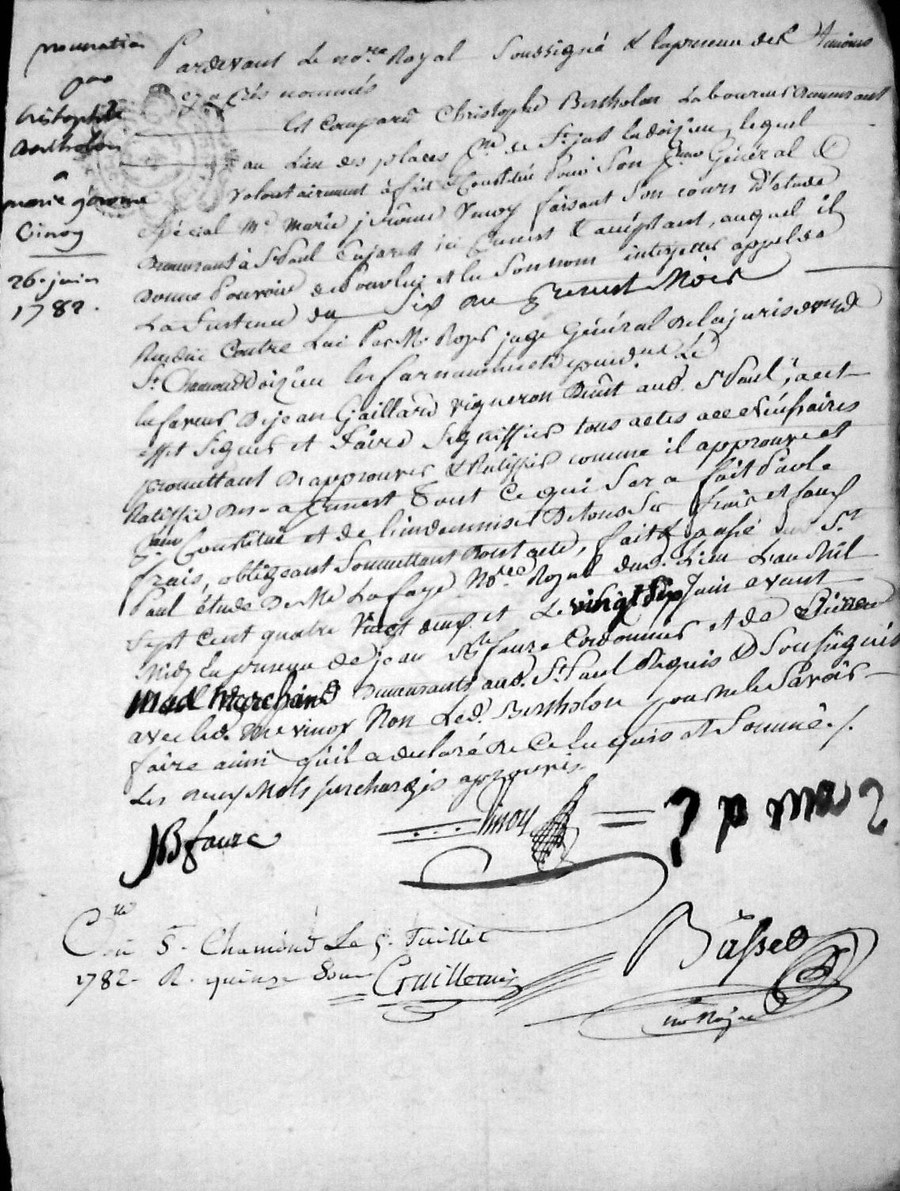 procuration
par
christophle
Bertholon
a
marie gérome
Vinoy
26. juin
1782.
Pardevant Le nore Royal Soussigné & En presence des temoins
cy après nommés
Est comparu Christophe Bertholon Laboureur demeurant
au Lieu des places psse de St just La doizieu, lequel
volontairement a fait & Constitué Pour Son preur Général &
spécial Me Marie jerome Vinoy faisant Son cours d'étude
demeurant à St Paul En jarest ici present & acceptant, auquel il
donne Pouvoir de Pour lui et En Son nom interjetter appel de
La Sentence du Six du present Mois
Rendüe Contre Lui Par Mr juge Général De la jurisdon de
St Chamond Doizieu Les farnanches et dependces
En faveur De jean Gaillard vigneron Dudt aud. St Paul, a cet
effet Signer et Faire Signiffier tous actes nécéssaires
promettant D'approuver & Ratiffier comme il approuve et
Ratiffie dès-a present Tout Ce qui Sera fait Par le
Sr. Constitué et de l'indemniser De tous Ses frais et faux
frais, obligeant Soumettant Renonceant, fait & passé aud. St
Paul étude De Me Lafaye Nore Royal dud. Lieu L'an Mil
Sept Cent quatre Vingt deux et Le vingt Six Juin avant
Midy En presence de jean Bte faure Cordonnier et de Pierre
Mad Marchand demeurants aud. St Paul Requis & Soussignés
avec led. Me vinoy Non Led. Bertholon pour ne le Savoir
faire ainsi qu'il a declaré De Ce Enquis et Sommé./.
Les deux Mots surchargés approuvés
JB faure
Vinoy
p ma
Cllé a St. Chamond Le 5. Juillet
1782. R. quinze Sous
Basset
nore Royal